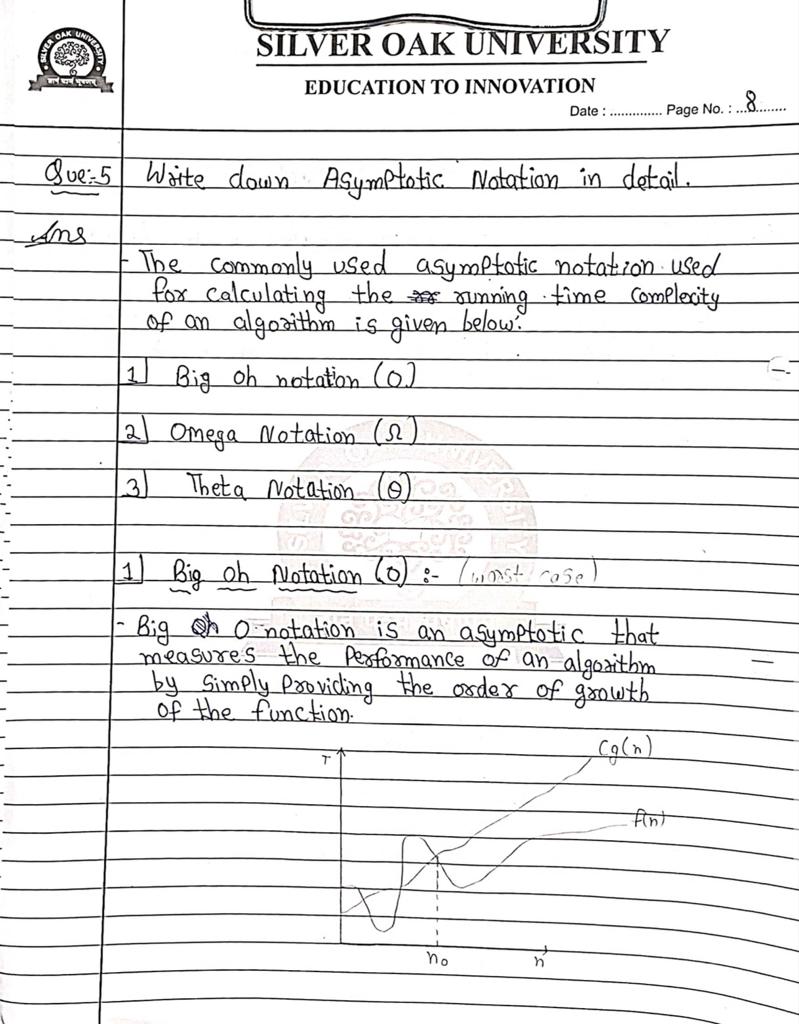 SILVER OAK UNIVERSITY
SILVER OAK UNIVERSITY
EDUCATION TO INNOVATION
Date : .............. Page No. : ...8........
Que:-5 Write down Asymptotic Notation in detail.
Ans
- The commonly used asymptotic notation used
for calculating the running time complexity
of an algorithm is given below:
1] Big oh notation (O)
2] Omega Notation (Ω)
3] Theta Notation (θ)
1] Big oh Notation (O) :- (worst case)
- Big O notation is an asymptotic that
measures the performance of an algorithm
by simply providing the order of growth
of the function.
T
Cg(n)
f(n)
n₀
n